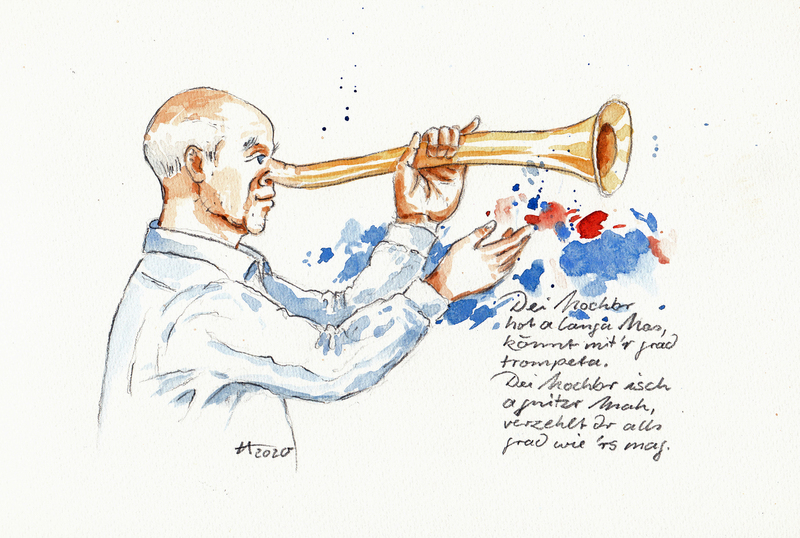 Dei Nochbr
hot a langa Nas,
könnt mit'r grad
trompeta.
Dei Nochbr isch
a gnitzr Mah,
verzehlt dr alls
grad wie 'rs mag.
2020